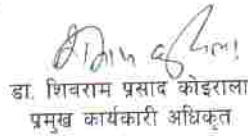 डा. शिवराम प्रसाद कोइराला
प्रमुख कार्यकारी अधिकृत